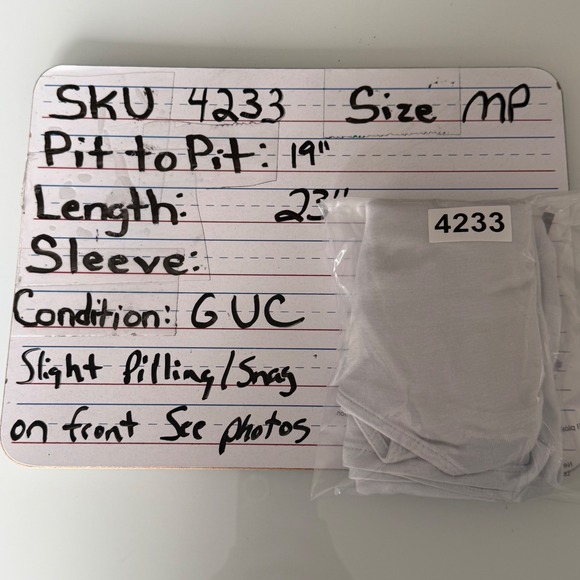 SKU 4233 Size MP
Pit to Pit: 19"
Length: 23"
4233
Sleeve:
Condition: GUC
Slight Pilling/Snag
on front See photos